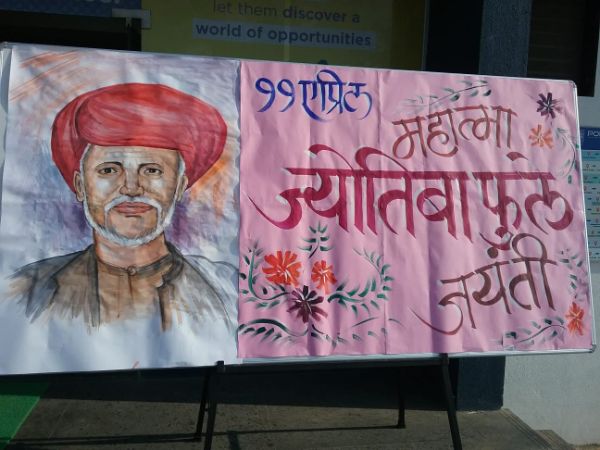 let them discover a
world of opportunities
११ एप्रिल
महात्मा
ज्योतिबा फुले
जयंती